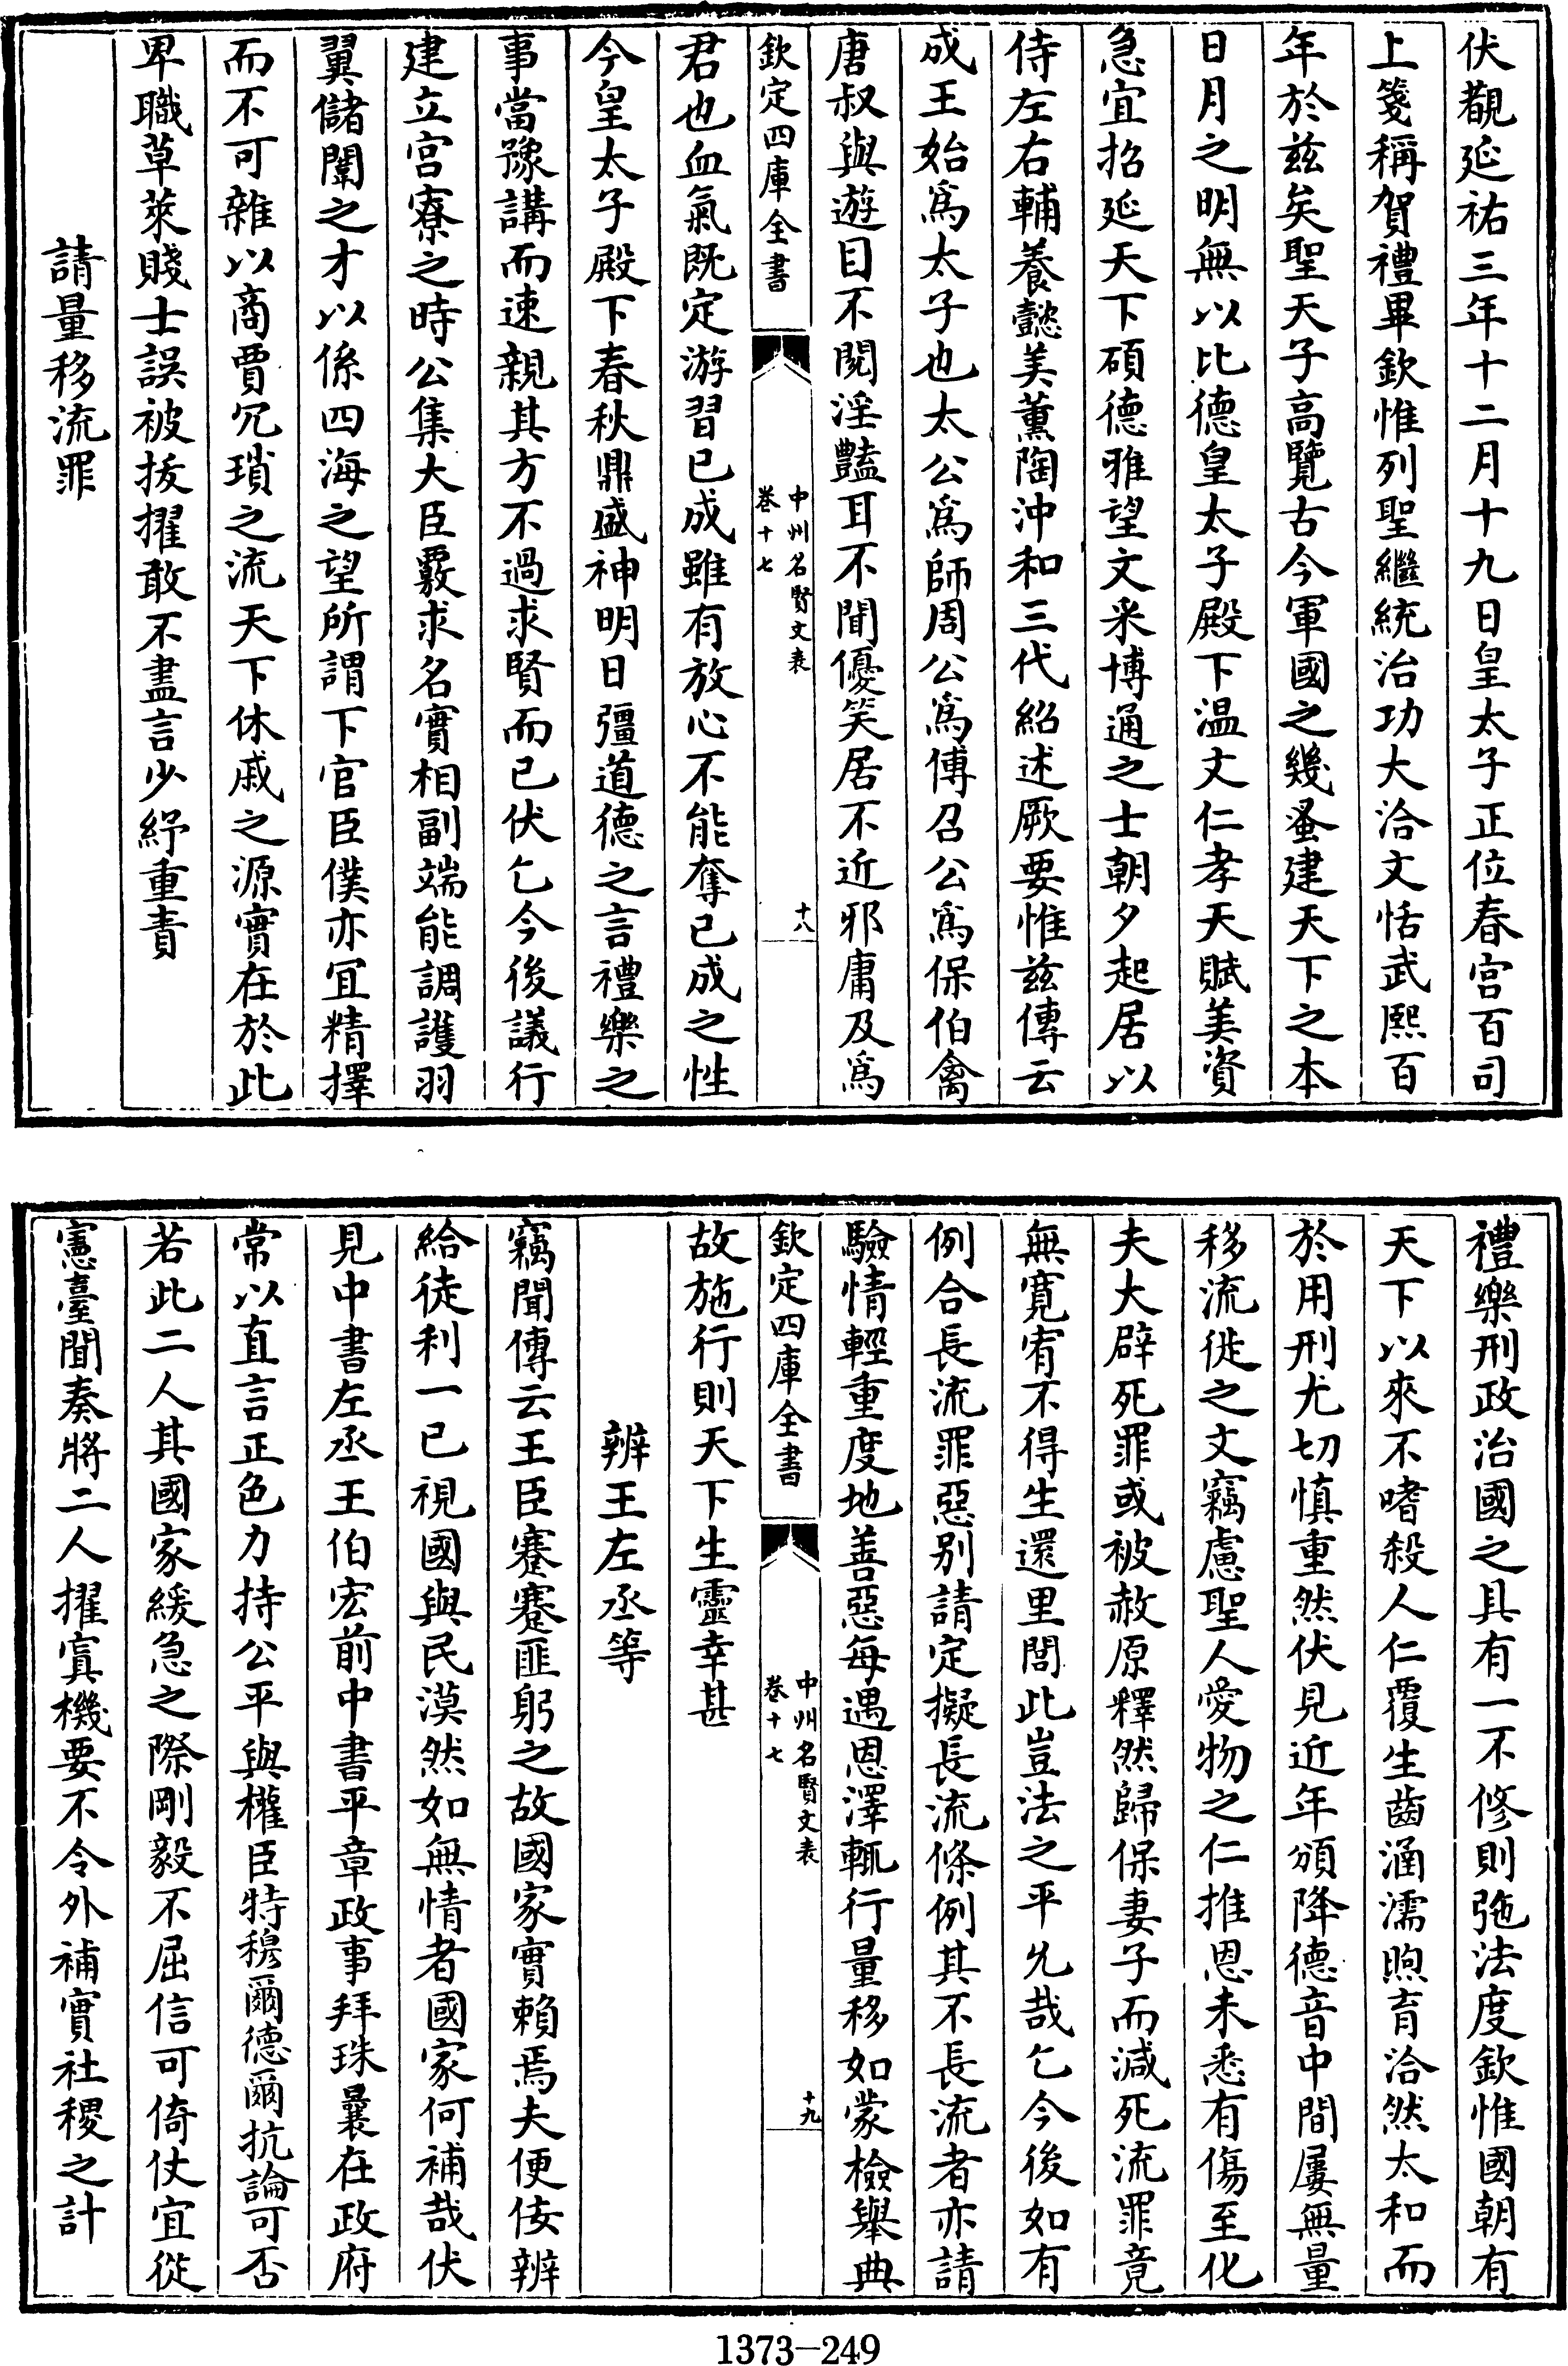 伏覩延祐三年十二月十九日皇太子正位春宮百司
上箋稱賀禮畢欽惟列聖繼統治功大洽文恬武熙百
年於兹矣聖天子高覽古今軍國之幾蚤建天下之本
日月之明無以比德皇太子殿下温文仁孝天賦美資
急宜招延天下碩德雅望文采博通之士朝夕起居以
侍左右輔養懿美薰陶沖和三代紹述厥要惟兹傳云
成王始爲太子也太公爲師周公爲傅召公爲保伯禽
唐叔與遊目不閱淫豔耳不聞優笑居不近邪庸及爲
欽定四庫全書
中州名賢文表
卷十七
十八
君也血氣既定游習已成雖有放心不能奪已成之性
今皇太子殿下春秋鼎盛神明日彊道德之言禮樂之
事當豫講而速親其方不過求賢而已伏乞今後議行
建立宫寮之時公集大臣覈求名實相副端能調護羽
翼儲闈之才以係四海之望所謂下官臣僕亦宜精擇
而不可雜以商賈冗瑣之流天下休戚之源實在於此
卑職草萊賤士誤被拔擢敢不盡言少紓重責
請量移流罪
禮樂刑政治國之具有一不修則弛法度欽惟國朝有
天下以來不嗜殺人仁覆生齒涵濡煦育洽然太和而
於用刑尤切慎重然伏見近年頒降德音中間屢無量
移流徙之文竊慮聖人愛物之仁推恩未悉有傷至化
夫大辟死罪或被赦原釋然歸保妻子而減死流罪竟
無寛宥不得生還里閭此豈法之平允哉乞今後如有
例合長流罪惡别請定擬長流條例其不長流者亦請
驗情輕重度地善惡每遇恩澤輒行量移如蒙檢舉典
欽定四庫全書
中州名賢文表
卷十七
十九
故施行則天下生靈幸甚
辨王左丞等
竊聞傳云王臣蹇蹇匪躬之故國家實賴焉夫便佞辨
給徒利一已視國與民漠然如無情者國家何補哉伏
見中書左丞王伯宏前中書平章政事拜珠曩在政府
常以直言正色力持公平與權臣特穆爾德爾抗論可否
若此二人其國家緩急之際剛毅不屈信可倚仗宜從
憲臺聞奏將二人擢寘機要不令外補實社稷之計
1373-249